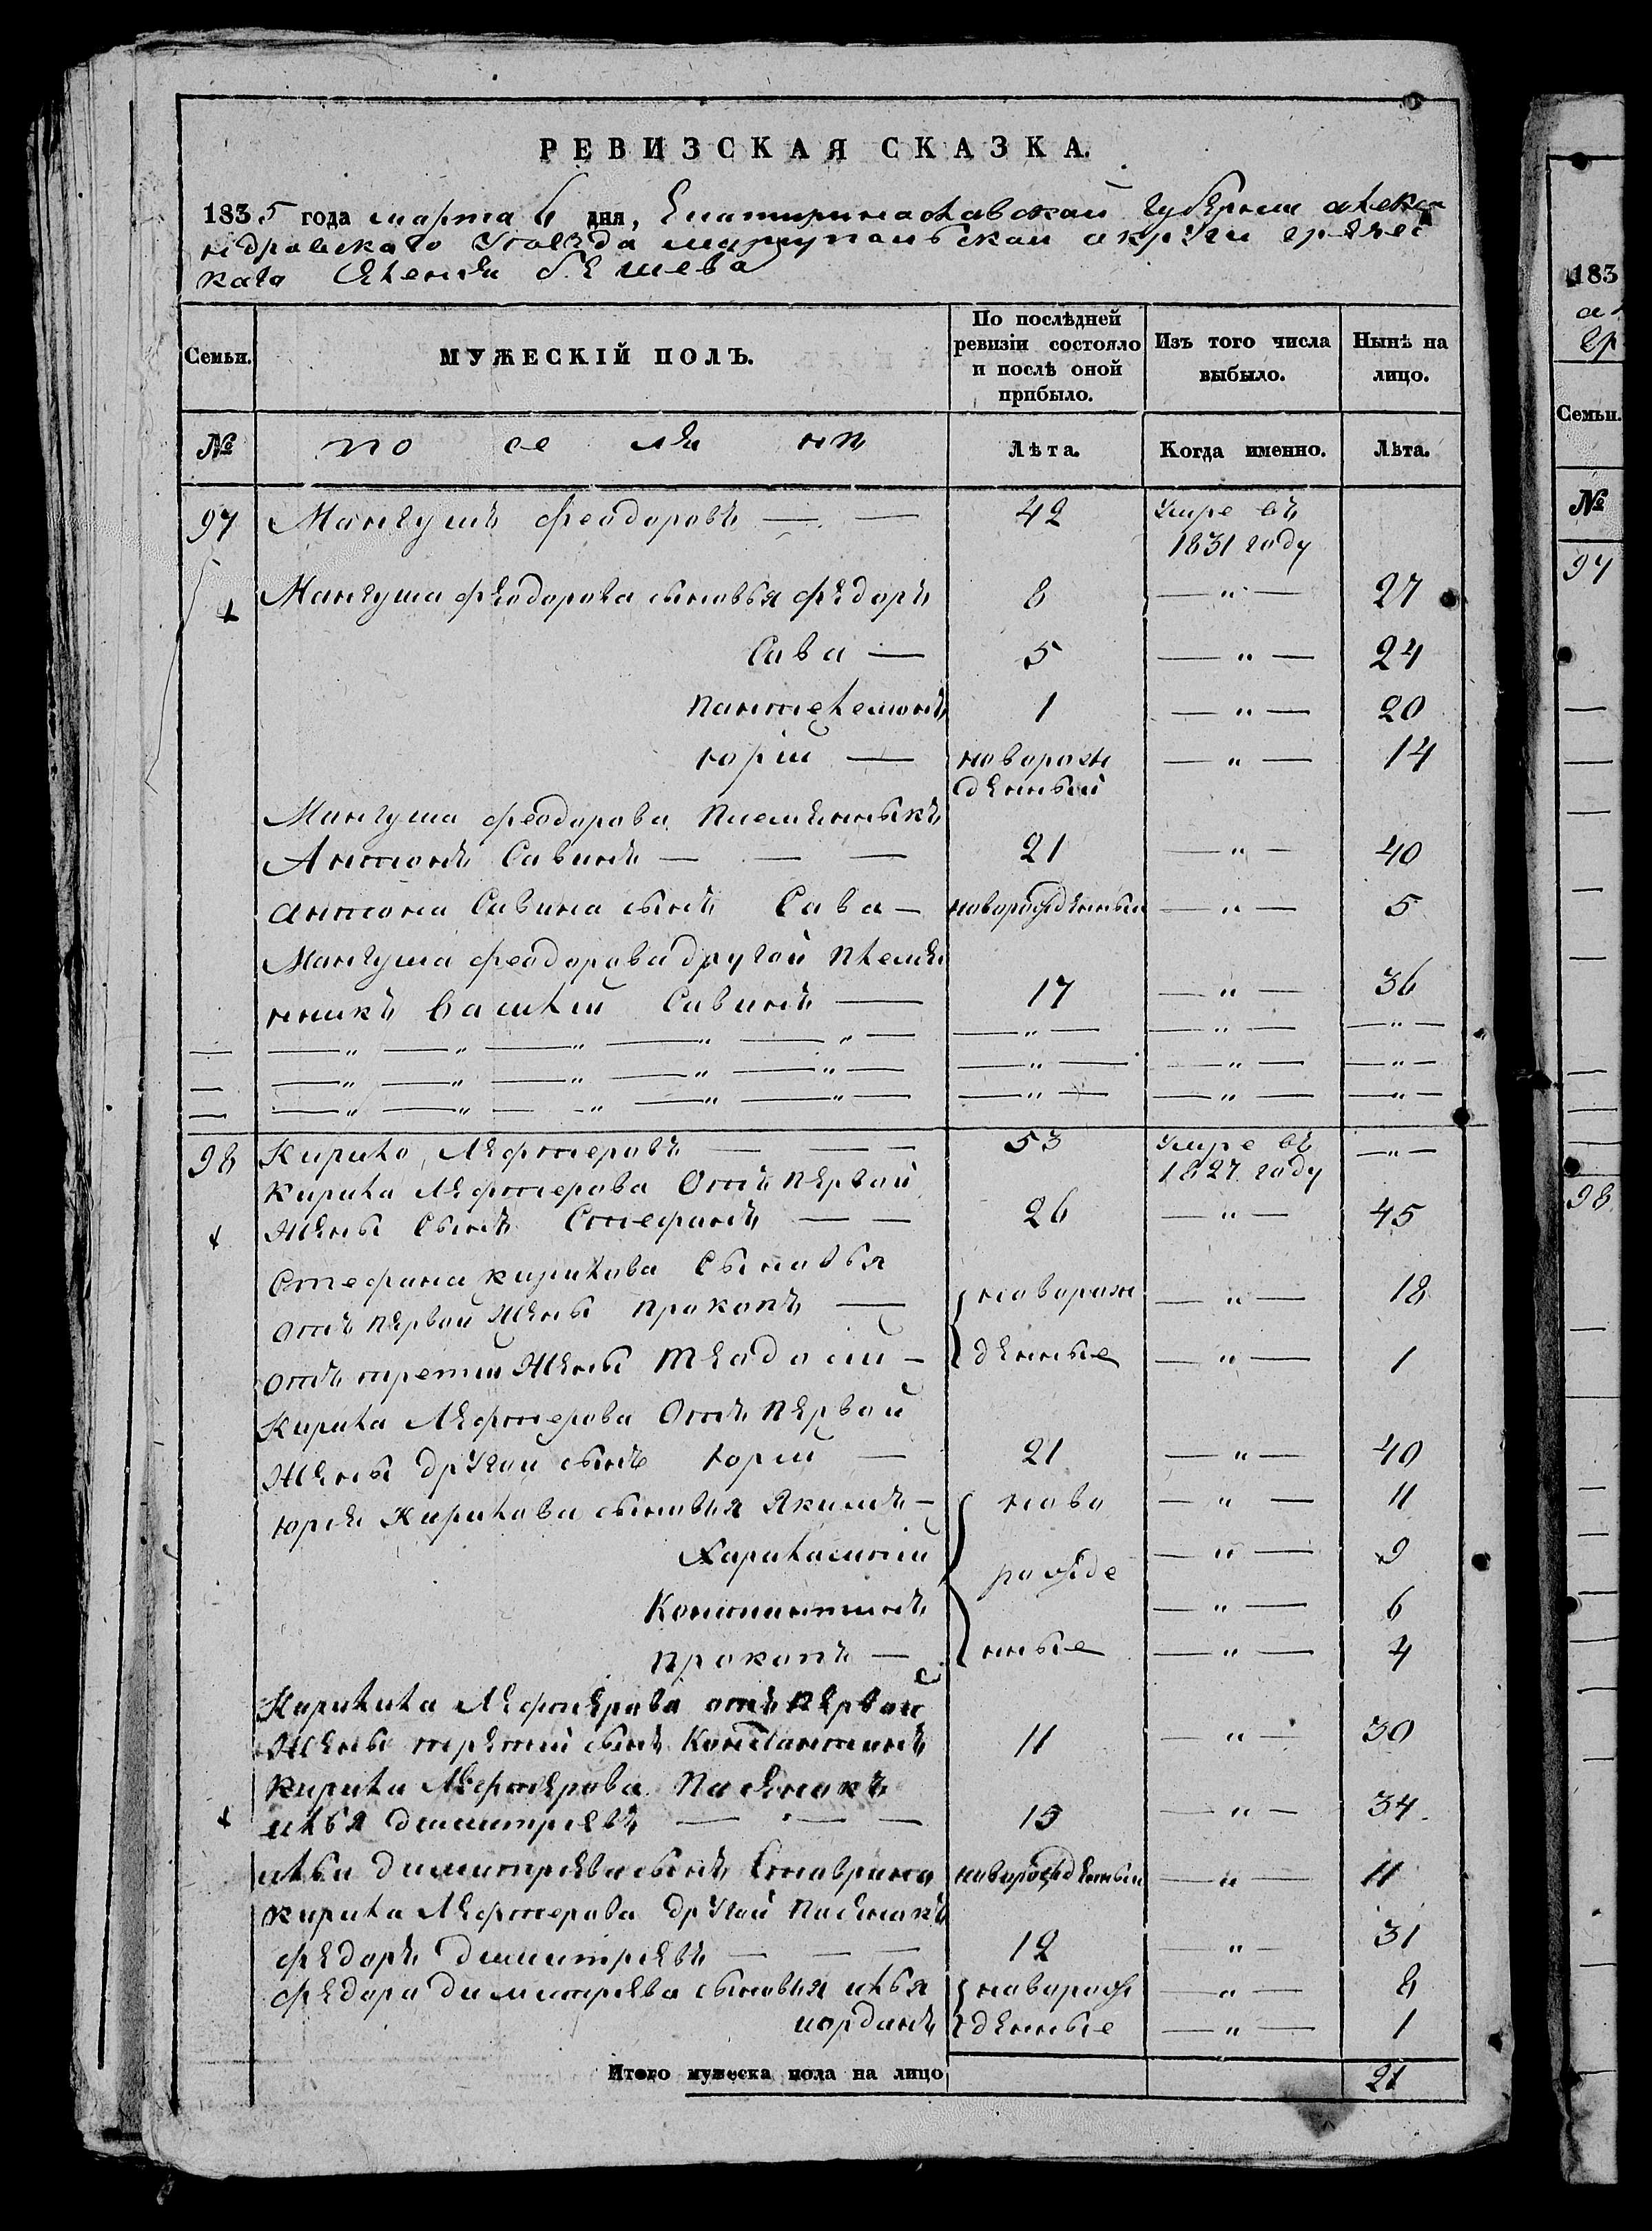 РЕВИЗСКАЯ СКАЗКА.
1835 года марта 6 дня, Екатиринославской губернии алекса
ндровскаго Уезда мариупольской округи гречес
каго Селения бешева
Семьи. МУЖЕСКІЙ ПОЛЪ. По послѣдней ревизіи состояло и послѣ оной прибыло. Изъ того числа выбыло. Нынѣ на лицо.
№ по се ля нѣ Лѣта. Когда именно. Лѣта.
97 Мангушъ феодоровъ — — 42 Умре въ
1831 году
Мангуша феодорова сыновья федоръ 8 — " — 27
Сава — 5 — " — 24
Пантелемонъ 1 — " — 20
юрій — новорож 14
денный
Мангуша феодорова племенныкъ
Антонъ Савинъ — — — 21 — " — 40
Антона Савина сынъ Сава — новорожденный — " — 5
Мангуша феодорова другой племе
нникъ Василий Савинъ — 17 — " — 36
98 Кирило Лефтеровъ — — — 53 Умре въ — " —
1827 году
Кирила Лефтерова Отъ первой
жены Сынъ Стефанъ — — 26 — " — 45
Стефана кирилова Сыновья
отъ первой жены прокопъ — новорож — " — 18
отъ третий жены Теодосий — денные — " — 1
Кирила Лефтерова Отъ первой
жены другой сынъ юрий — 21 — " — 40
юрия Кирилова сыновья Якимъ — ново — " — 11
Харилампий рожде — " — 9
Константинъ — " — 6
прокопъ — нные — " — 4
Кирилила Лефтерова отъ первой
жены третий сынъ Константинъ 11 — " — 30
Кирила Лефтерова Пасынокъ
илья димитриевъ — — — 15 — " — 34
ильи димитриева сынъ Ставрино новорожденный — " — 11
кирила Лефтерова другой пасынокъ
федоръ димитриевъ — — — 12 — " — 31
федора димитриева сыновья илья новорож — " — 8
иорданъ денные — " — 1
Итого мужеска пола на лицо 21
183
Семьи.
№
97
98